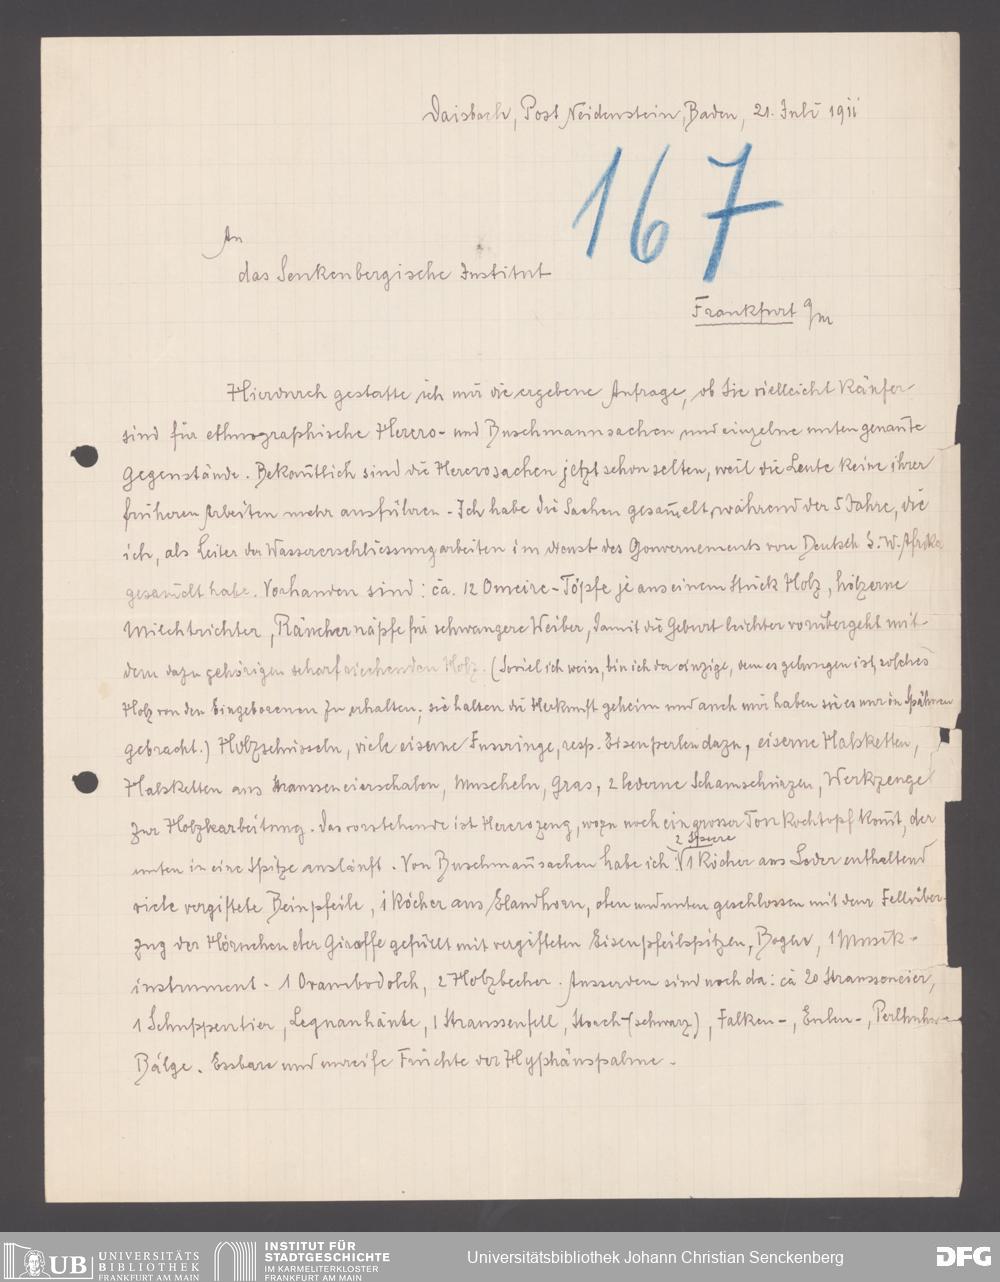 Daisbach, Post Neidenstein, Baden, 21. Juli 1911
167
An
das Senkenbergische Institut
Frankfurt a/m
Hierdurch gestatte ich mir die ergebene Anfrage, ob Sie vielleicht Käufer
sind für ethnographische Herero- und Buschmannsachen und einzelne unten genan̄te
Gegenstände. Bekan̄tlich sind die Hererosachen jetzt schon selten, weil die Leute keine ihrer
früheren Arbeiten mehr ausführen. Ich habe die Sachen gesam̄elt, während der 5 Jahre, die
ich, als Leiter der Wassererschliessungarbeiten im Dienst des Gouvernements von Deutsch S. W. Afrika
gesam̄elt habe. Vorhanden sind: ca. 12 Omeire-Töpfe je aus einem Stück Holz, hölzerne
Milchtrichter, Räuchernäpfe für schwangere Weiber, damit die Geburt leichter vorübergeht mit
dem dazu gehörigen scharf riechenden Holz. (Soviel ich weiss, bin ich der einzige, dem es gelungen ist, solches
Holz von den Eingeborenen zu erhalten; sie halten die Herkunft geheim und auch mir haben sie es nur in Spähnen
gebracht.) Holzschüsseln, viele eiserne Fussringe, resp. Eisenperlen dazu, eiserne Halsketten,
Halsketten aus Strausseneierschalen, Muscheln, Gras, 2 lederne Schamschürzen, Werkzeuge
zur Holzbearbeitung. Das vorstehende ist Hererozeug, wozu noch ein grosser Ton Kochtopf kom̄t, der
unten in eine Spitze ausläuft. Von Buschman̄sachen habe ich: 2 Speere 1 Köcher aus Leder enthaltend
viele vergiftete Beinpfeile, 1 Köcher aus Elandhorn, oben und unten geschlossen mit dem Fellüber-
zug der Hörnchen der Giraffe gefüllt mit vergifteten Eisenpfeilspitzen, Bogen, 1 Musik-
instrument. 1 Ovambodolch, 2 Holzbecher. Ausserdem sind noch da: ca 20 Strausseneier,
1 Schuppentier, Leguanhäute, 1 Straussenfell, Storch-(schwarz), Falken-, Eulen-, Perlhuhn-
Bälge. Essbare und unreife Früchte der Hyphänspalme.
UB UNIVERSITÄTS
BIBLIOTHEK
FRANKFURT AM MAIN
INSTITUT FÜR
STADTGESCHICHTE
IM KARMELITERKLOSTER
FRANKFURT AM MAIN
Universitätsbibliothek Johann Christian Senckenberg
DFG